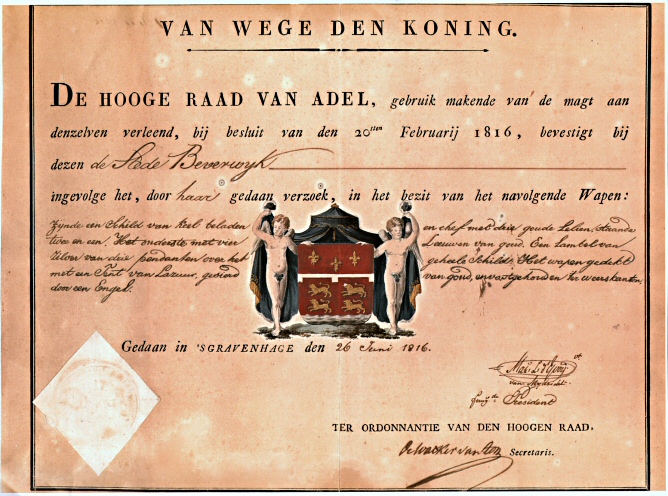 VAN WEGE DEN KONING.
DE HOOGE RAAD VAN ADEL, gebruik makende van de magt aan
denzelven verleend, bij besluit van den 20sten Februarij 1816, bevestigt bij
dezen de Stede Beverwyk
ingevolge het, door haar gedaan verzoek, in het bezit van het navolgende Wapen:
Zynde een Schild van keel beladen en chef met drie goude Lelien, staande
twee en een. Het onderste met vier Leeuwen van goud. Een Lambel van
zilver van drie pendanten over het geheele Schild. Het wapen gedekt
met een Tent van Lazuur, gevoerd van goud, en vastgehouden ter weerskanten
door een Engel.
Gedaan in 'SGRAVENHAGE den 26 Juni 1816.
President
TER ORDONNANTIE VAN DEN HOOGEN RAAD,
Secretaris.